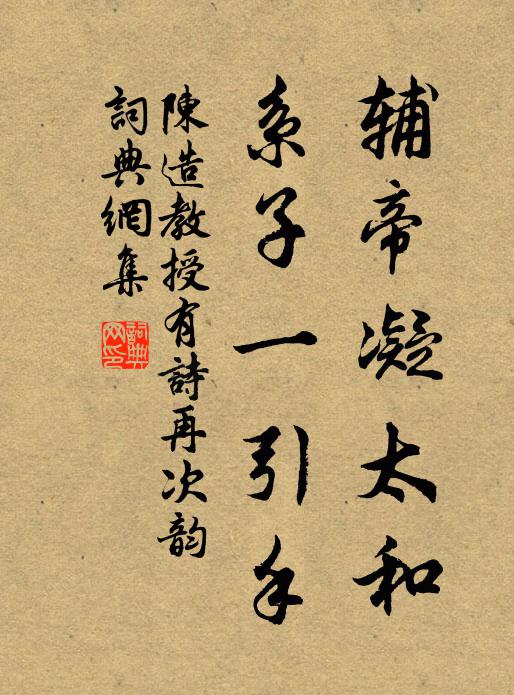 輔帝凝太和
系子一引手
陳造教授有詩再次韵
詞典網集
詞典
网印